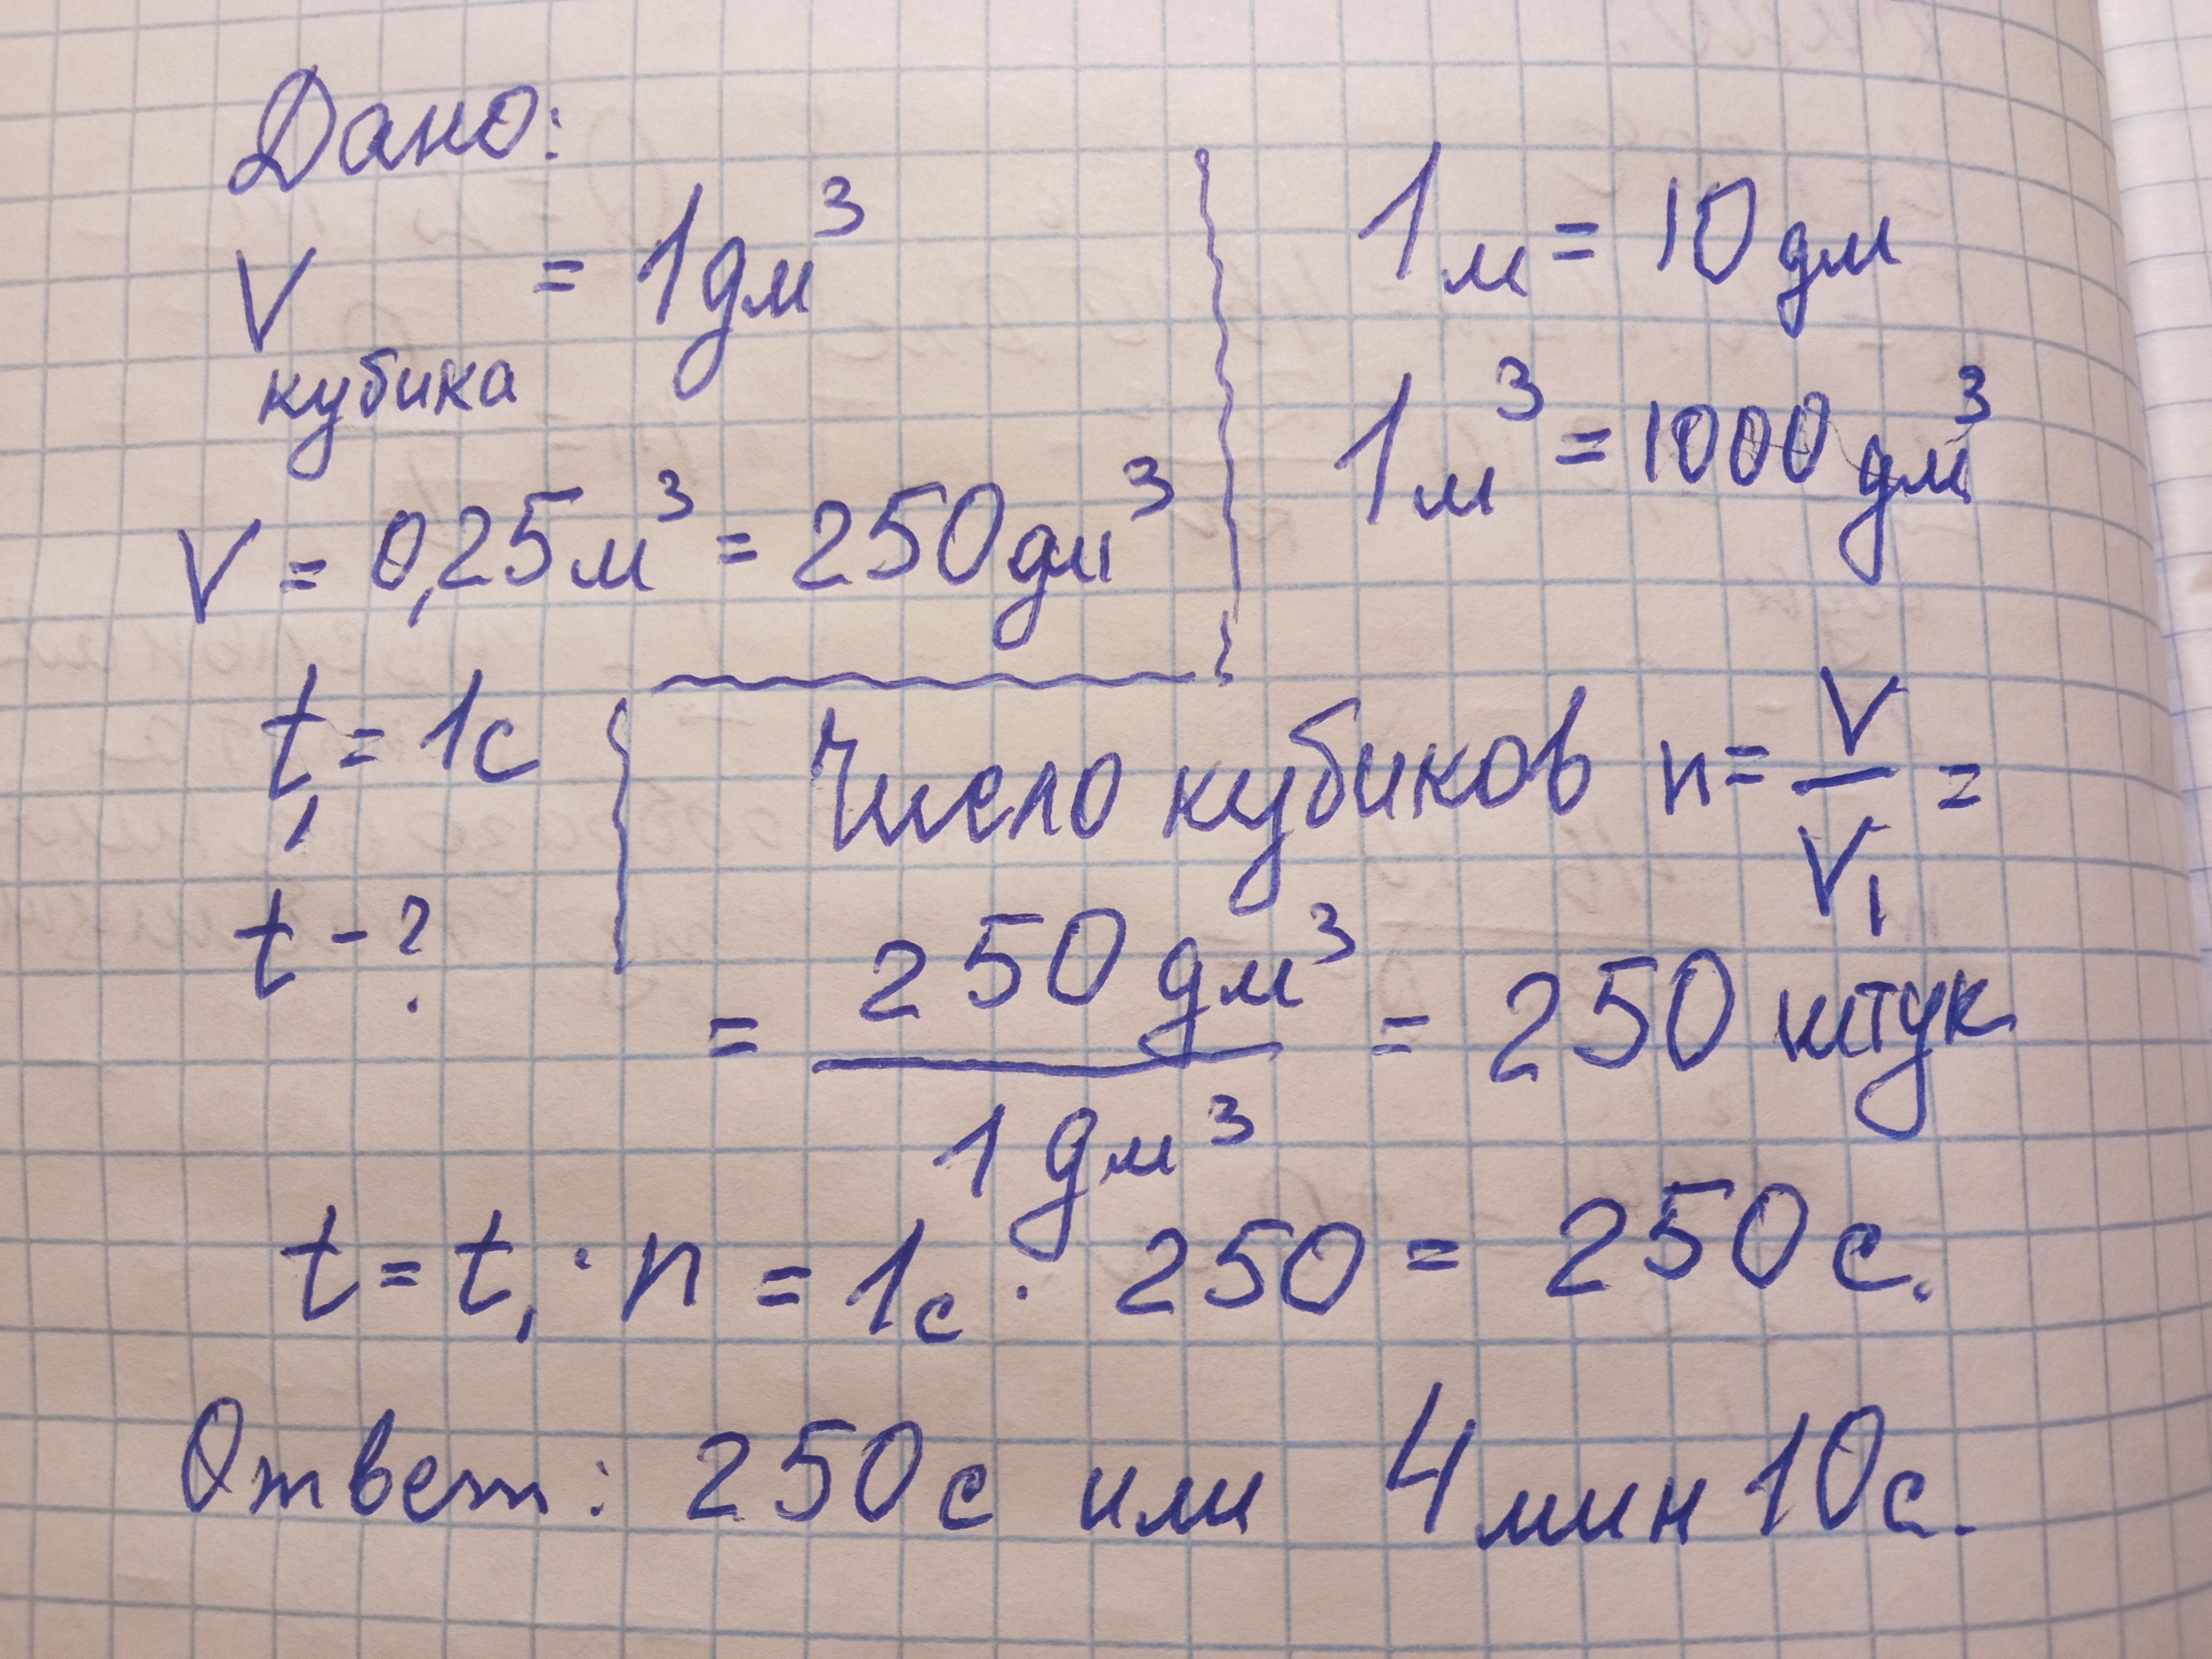 Дано:
V кубика = 1 дм³
V = 0,25 м³ = 250 дм³
1 м = 10 дм
1 м³ = 1000 дм³
t₁ = 1 с
t - ?
Число кубиков n = V/V₁ =
= 250 дм³/1 дм³ = 250 штук
t = t₁ · n = 1 с · 250 = 250 с.
Ответ: 250 с или 4 мин 10 с.